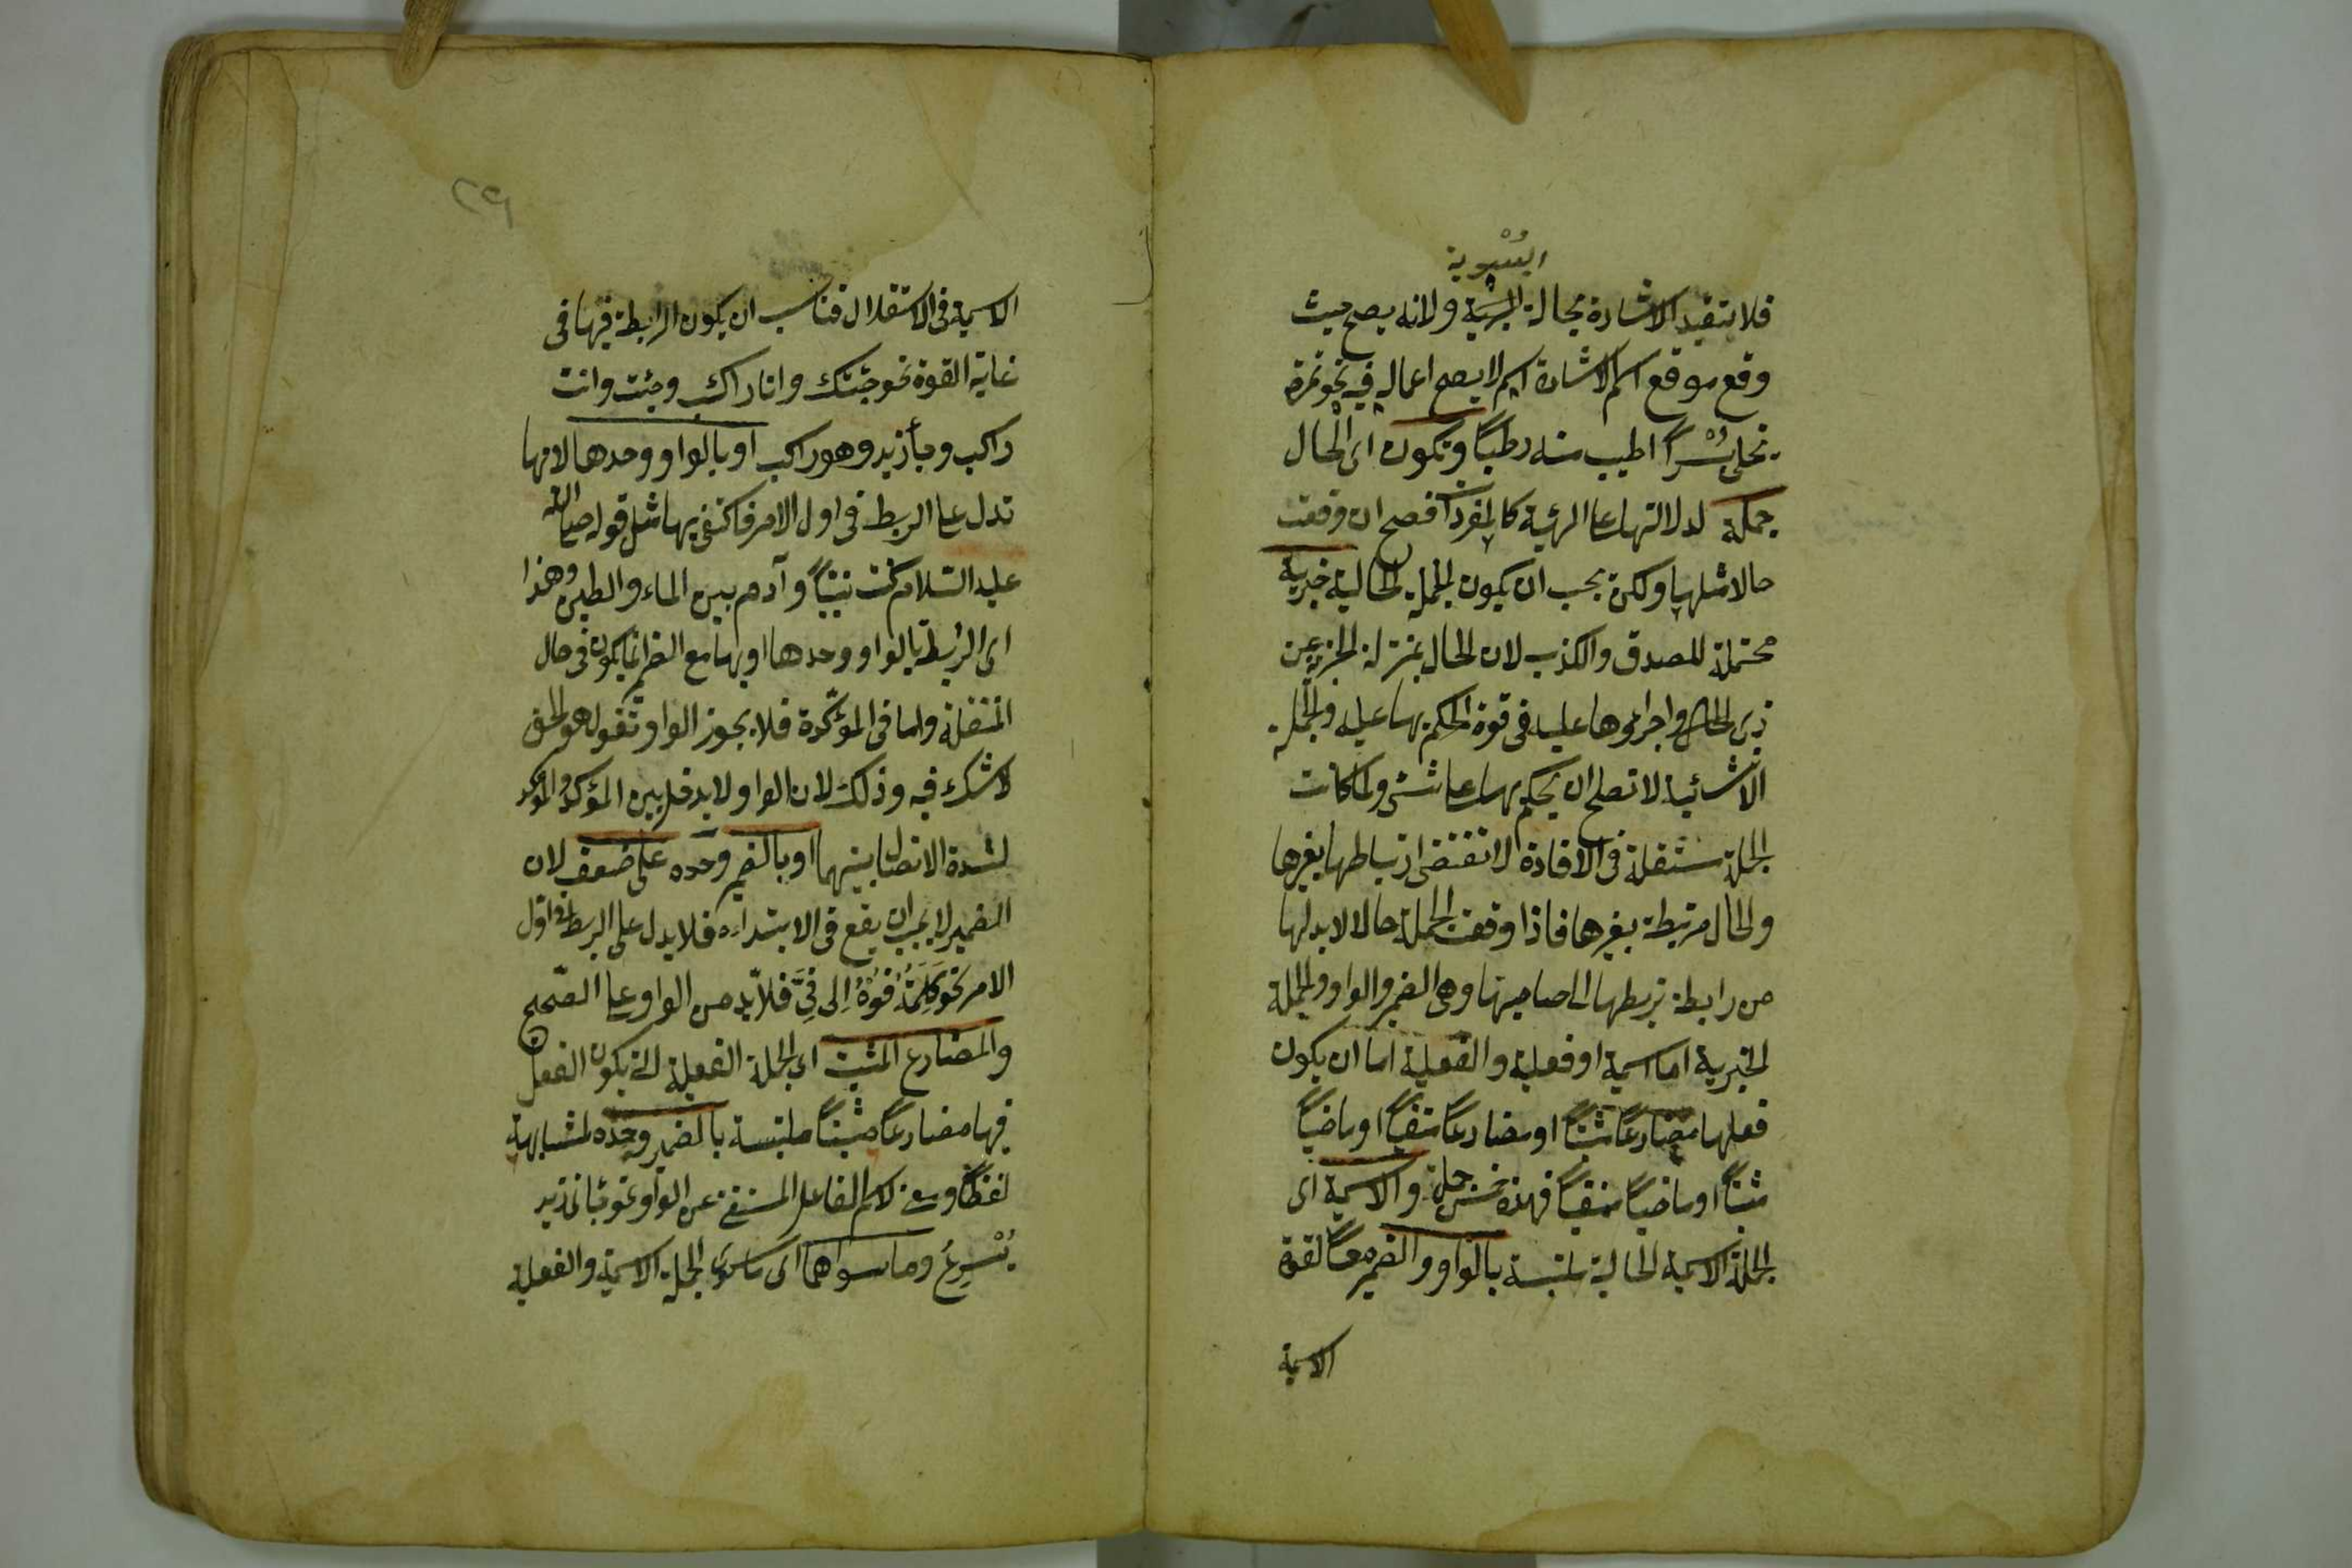 البُسْرية
فلا تتقيد الاشارة بحالة البسرية ولانه يصح حيث
وقع موقع اسم الاشارة اسم لا يصح اعماله فيه نحو تمرة
نخلى بُسْرًا اطيب منه رطبًا وتكون اى الحال
جملة لدلالتها على الهيئة كالمفردات فصح ان وقعت
حالا مثلها ولكن يجب ان يكون الجملة الحالية خبرية
محتملة للصدق والكذب لان الحال بمنزلة الخبر عن
ذى الحال واجراؤها عليه فى قوة الحكم بها عليه والجملة
الانشائية لا تصلح ان يحكم بها على شئ ولما كانت
الجملة مستقلة فى الافادة لا تقتضى ارتباطها بغيرها
والحال مرتبطة بغيرها فاذا وقعت الجملة حالا لا بد لها
من رابطة تربطها الى صاحبها وهى الضمير والواو والجملة
الخبرية اما اسمية او فعلية والفعلية اما ان يكون
فعلها مضارعًا مثبتًا او مضارعًا منفيًا او ماضيًا
مثبتًا او ماضيًا منفيًا فهذه خمس جمل والاسمية اى
الجملة الاسمية الحالية ملتبسة بالواو والضمير معًا لقوة
الاسمية
٢٩
الاسمية فى الاستقلال فناسب ان يكون الرابطة فيها فى
غاية القوة نحو جئتك وانا راكب وجئت وانت
راكب وجاء زيد وهو راكب او بالواو وحدها لانها
تدل على الربط فى اول الامر فاكتفى بها مثل قوله صلى الله
عليه السلام كنت نبيًا وآدم بين الماء والطين وهذا
اى الربط بالواو وحدها او بها مع الضمير انما يكون فى حال
المنتقلة واما فى المؤكدة فلا يجوز الواو تقول هو الحق
لا شك فيه وذلك لان الواو لا يدخل بين المؤكد والمؤكد
لشدة الاتصال بينهما او بالضمير وحده على ضعف لان
الضمير لا يجب ان يقع فى الابتداء فلا يدل على الربط فى اول
الامر نحو كلّمتُه فُوهُ اِلى فِيَّ فلا بد من الواو على الصحيح
والمضارع المثبت اى الجملة الفعلية التى يكون الفعل
فيها مضارعًا مثبتًا ملتبسة بالضمير وحده لمشابهته
لفظًا ومعنى لاسم الفاعل المستغنى عن الواو نحو جاءنى زيد
يُسْرِعُ وما سواهما اى ما سوى الجملة الاسمية والفعلية